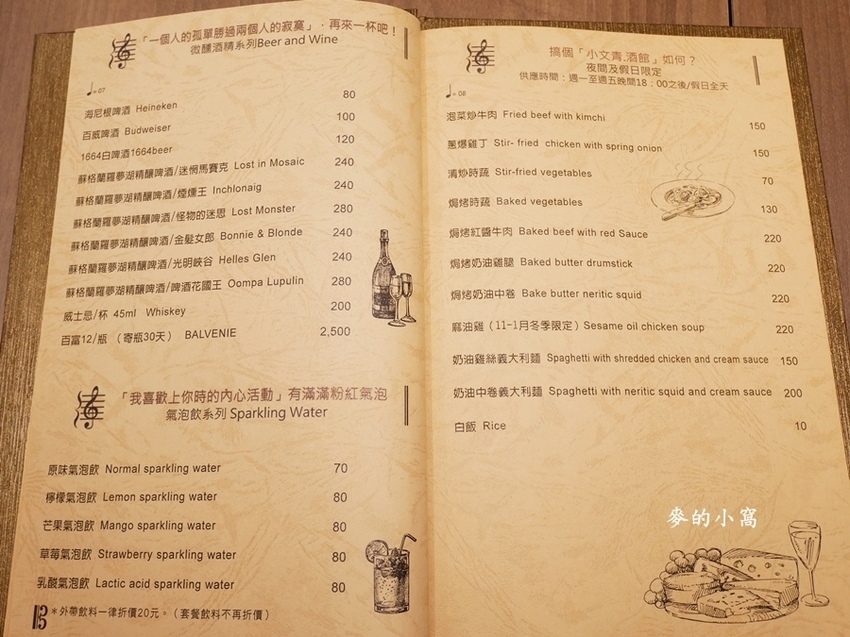 「一個人的孤單勝過兩個人的寂寞」，再來一杯吧！
微醺酒精系列Beer and Wine
=07
海尼根啤酒 Heineken 80
百威啤酒 Budweiser 100
1664白啤酒1664beer 120
蘇格蘭羅夢湖精釀啤酒/迷惘馬賽克 Lost in Mosaic 240
蘇格蘭羅夢湖精釀啤酒/煙燻王 Inchlonaig 240
蘇格蘭羅夢湖精釀啤酒/怪物的迷思 Lost Monster 280
蘇格蘭羅夢湖精釀啤酒/金髮女郎 Bonnie & Blonde 240
蘇格蘭羅夢湖精釀啤酒/光明峽谷 Helles Glen 240
蘇格蘭羅夢湖精釀啤酒/啤酒花國王 Oompa Lupulin 280
威士忌/杯 45ml Whiskey 200
百富12/瓶 （寄瓶30天） BALVENIE 2,500
「我喜歡上你時的內心活動」有滿滿粉紅氣泡
氣泡飲系列 Sparkling Water
原味氣泡飲 Normal sparkling water 70
檸檬氣泡飲 Lemon sparkling water 80
芒果氣泡飲 Mango sparkling water 80
草莓氣泡飲 Strawberry sparkling water 80
乳酸氣泡飲 Lactic acid sparkling water 80
＊外帶飲料一律折價20元。（套餐飲料不再折價）
搞個「小文青.酒館」如何？
夜間及假日限定
供應時間：週一至週五晚間18：00之後/假日全天
=08
泡菜炒牛肉 Fried beef with kimchi 150
蔥爆雞丁 Stir- fried chicken with spring onion 150
清炒時蔬 Stir-fried vegetables 70
焗烤時蔬 Baked vegetables 130
焗烤紅醬牛肉 Baked beef with red Sauce 220
焗烤奶油雞腿 Baked butter drumstick 220
焗烤奶油中卷 Bake butter neritic squid 220
麻油雞（11-1月冬季限定）Sesame oil chicken soup 220
奶油雞絲義大利麵 Spaghetti with shredded chicken and cream sauce 150
奶油中卷義大利麵 Spaghetti with neritic squid and cream sauce 200
白飯 Rice 10
麥的小窩